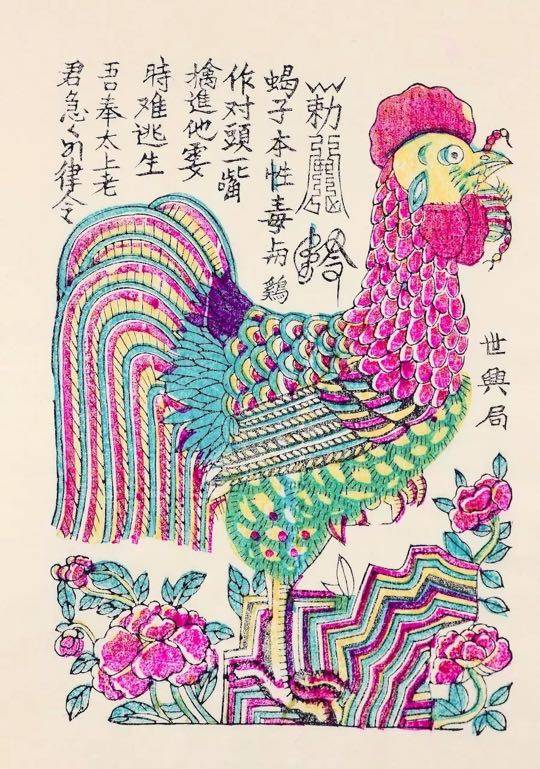 勅
蝎子本性毒与鷄
作对頭一嘴
擒進他要
時难逃生
吾奉太上老
君急々如律令
世興局